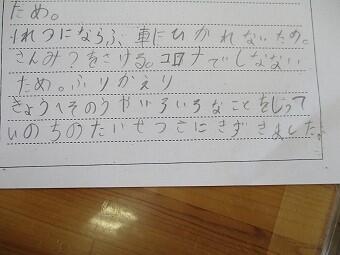 ため。
1れつにならぶ、車にひかれないため。
さんみつをさける。コロナでしなない
ため。ふりかえり
きょうへそのうやいろいろなことをしって
いのちのたいせつさにきずきました。